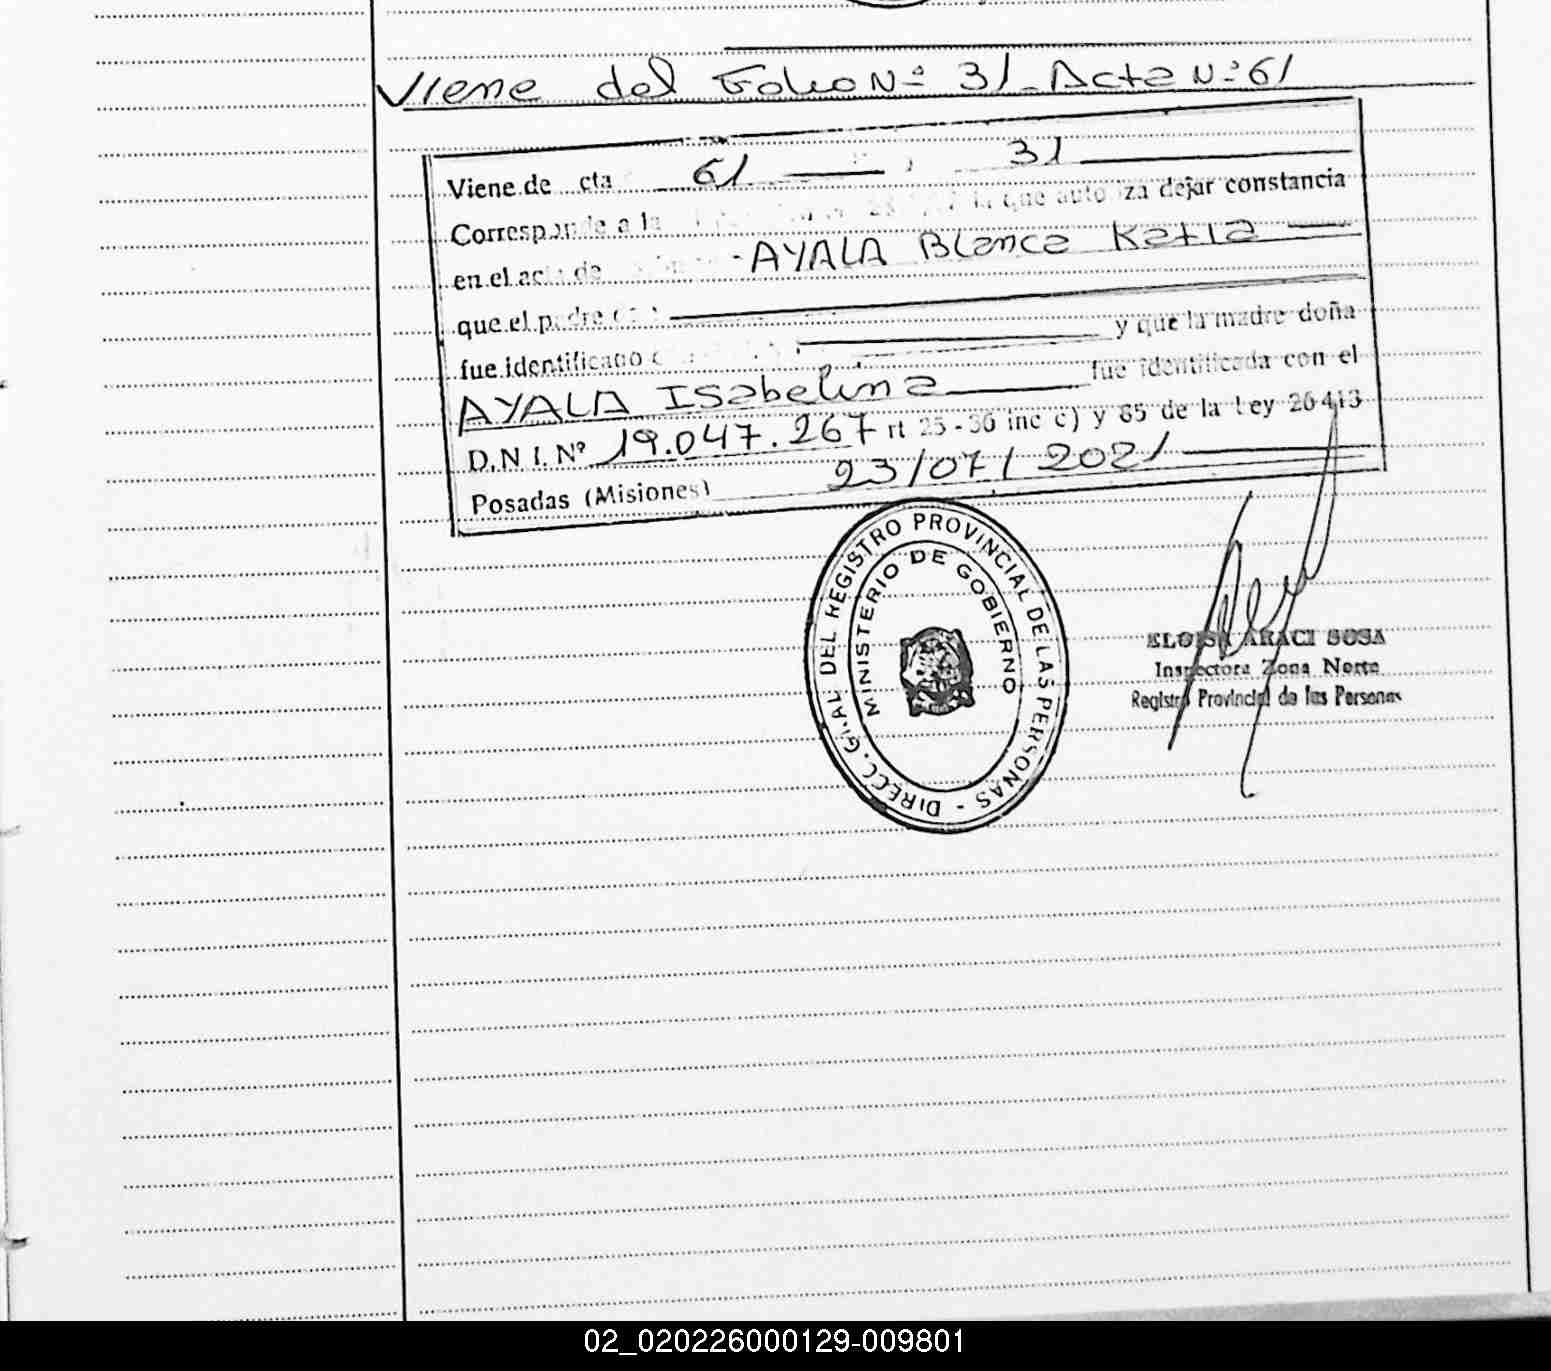 Viene del Folio Nº 31 Acta Nº 61
Viene de cta 61 31
Corresponde a la que autoriza dejar constancia
en el acta de AYALA Blanca Katia
que el padre
fue identificado y que la madre doña
AYALA Isabelina fue identificada con el
D.N.I. Nº 19.047.267 rt 25-36 inc c) y 85 de la Ley 26413
Posadas (Misiones) 23/07/2021
DIRECC. GRAL DEL REGISTRO PROVINCIAL DE LAS PERSONAS -
MINISTERIO DE GOBIERNO
ELOISA ARACI SOSA
Inspectora Zona Norte
Registro Provincial de las Personas
02_020226000129-009801